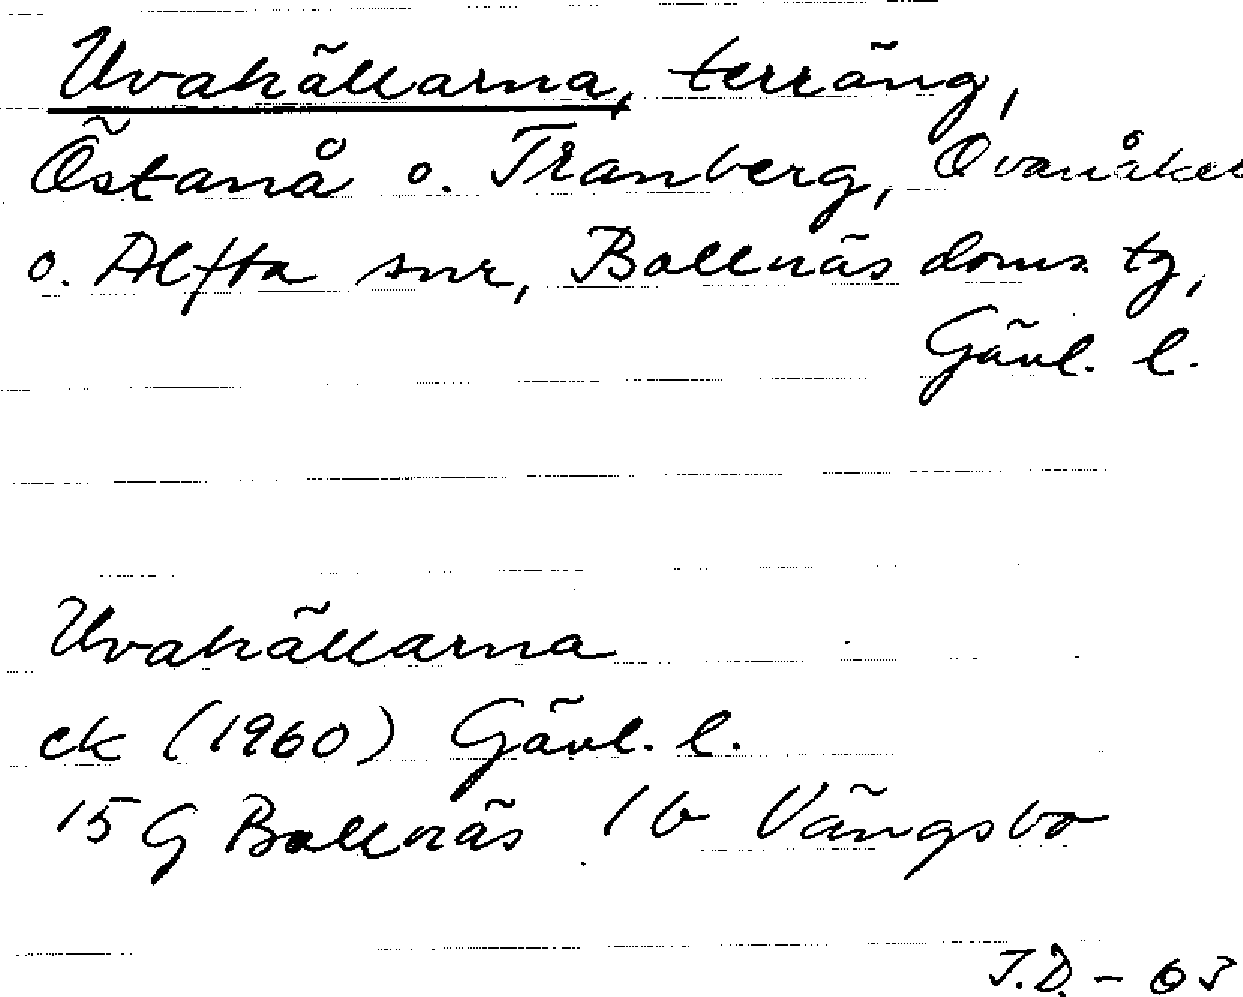 Uvahällarna, terräng,
Östanå o. Tranberg, Ovanåker
o. Alfta snr, Bollnäs doms. tg,
Gävl. l.
Uvahällarna
ek (1960) Gävl. l.
15 G Bollnäs 1b Vängsbo
J.D. - 63